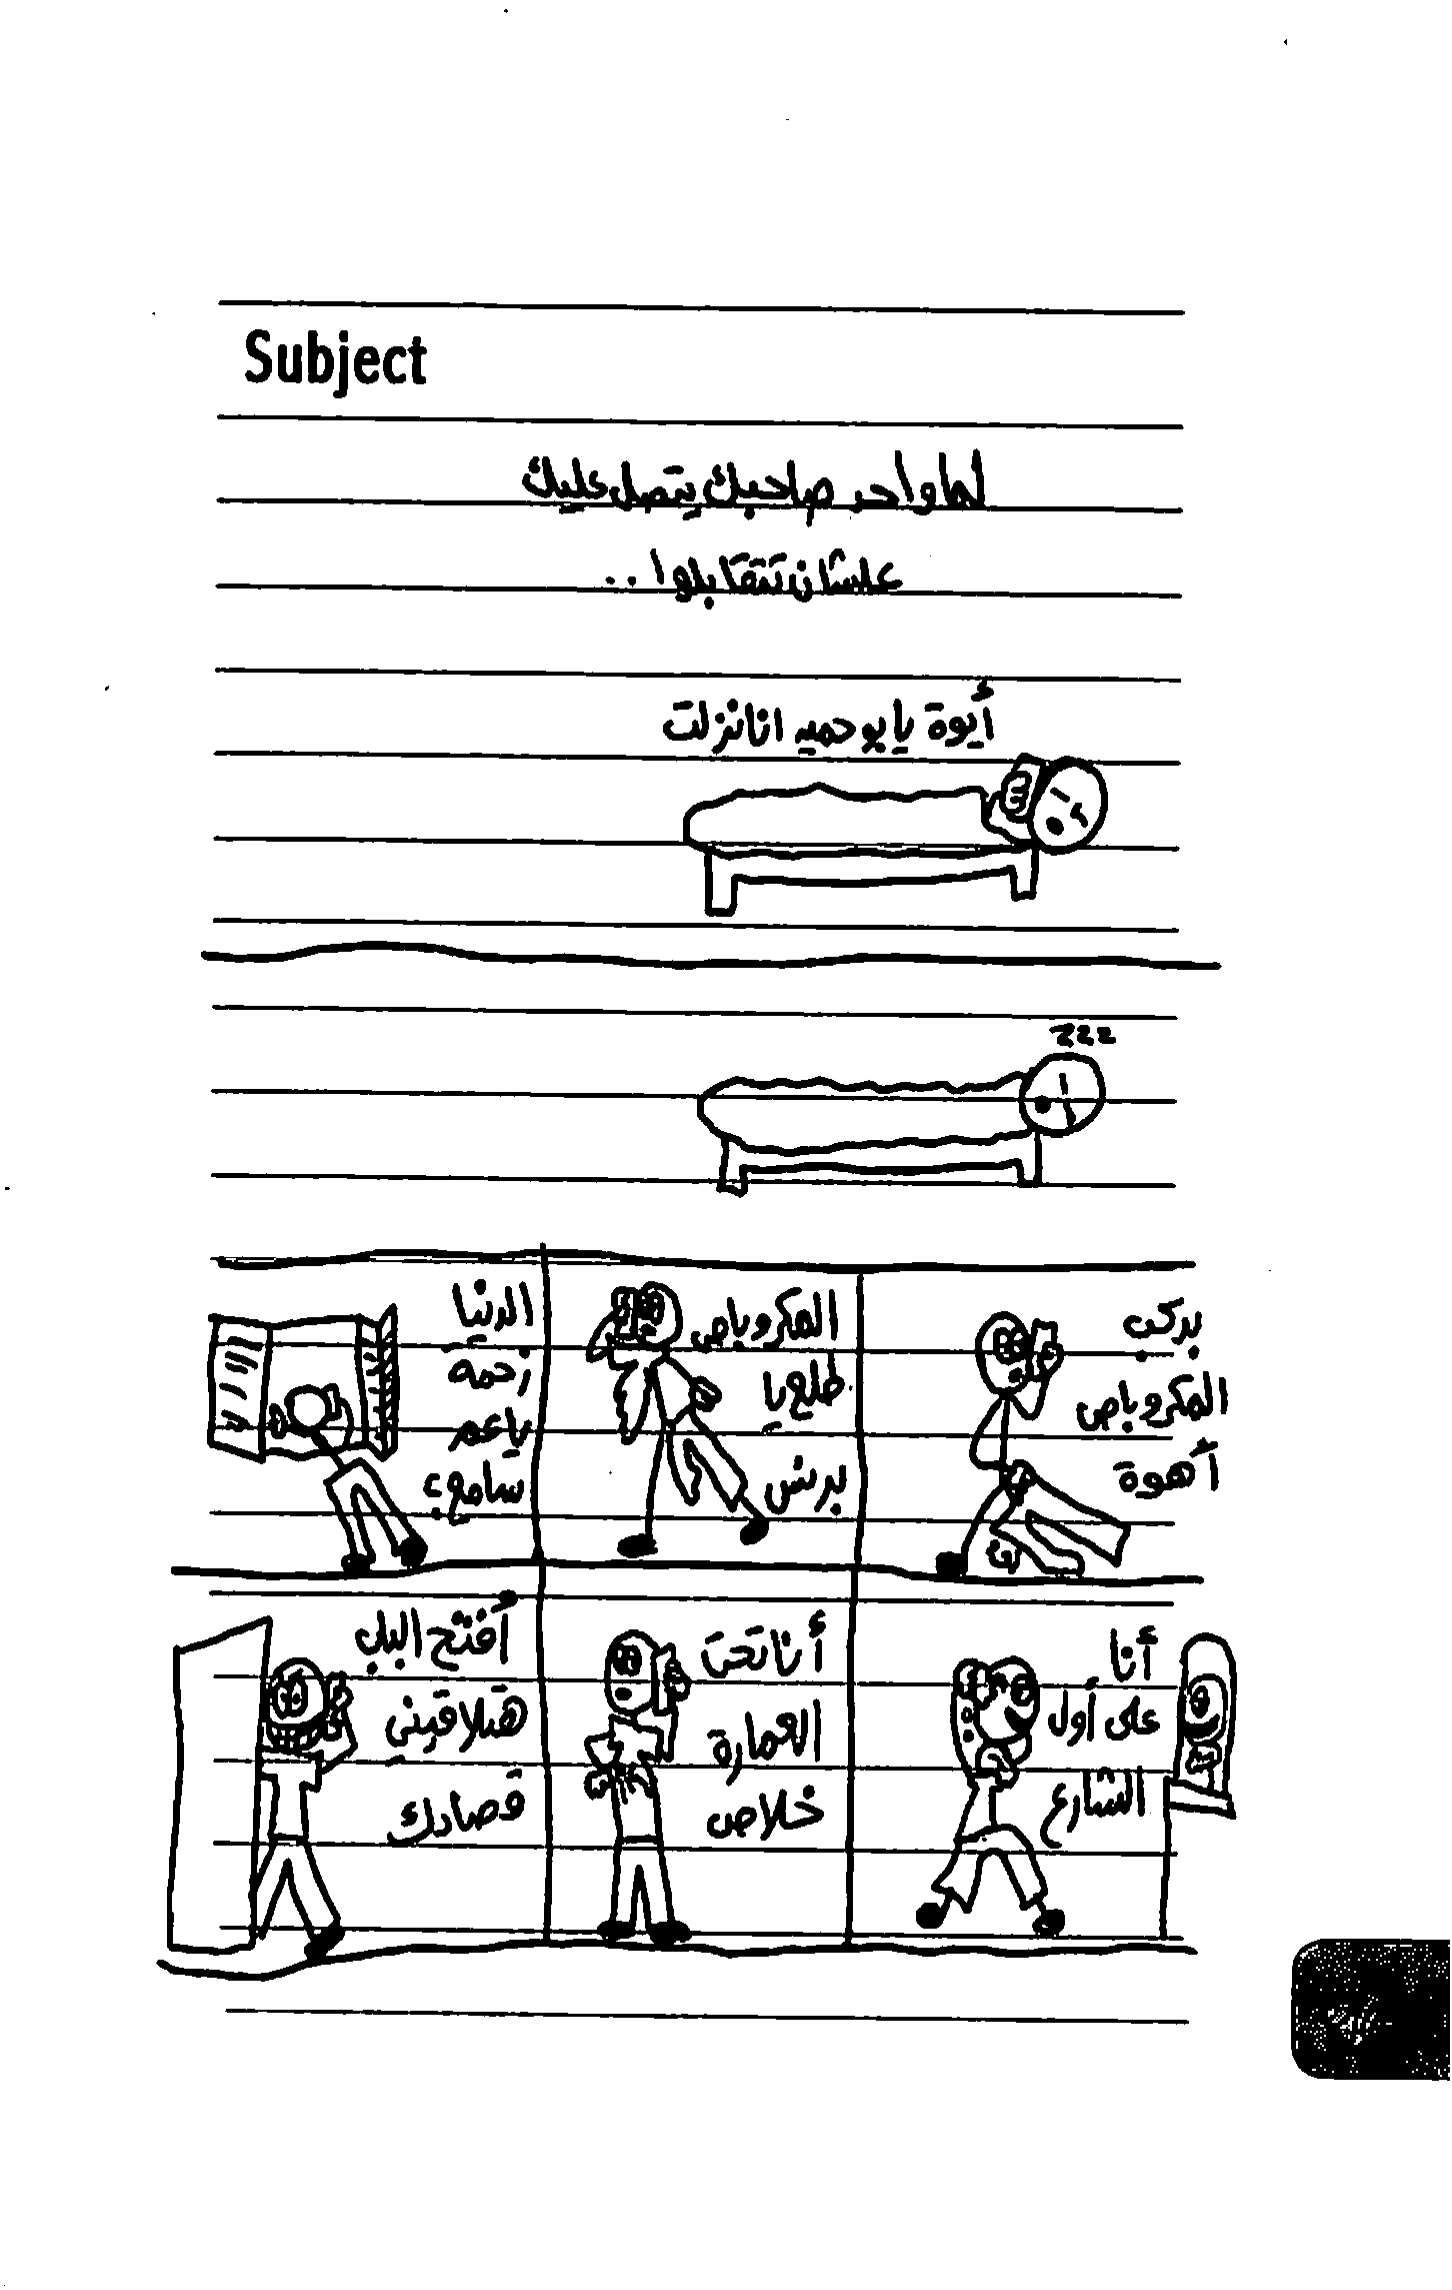 Subject
لما واحد صاحبك يتصل عليك
علشان تتقابلوا ..
أيوة يا بو حميد انا نزلت
zzz
بركب
المكروباص
أهوة
المكروباص
طلع يا
برنس
الدنيا
زحمه
يا عم
سامع؟
أنا
على أول
الشارع
أنا تحت
العمارة
خلاص
أفتح الباب
هتلاقيني
قصادك